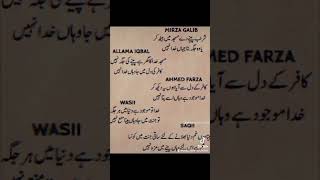 MIRZA GALIB
شراب پینے دے مسجد میں بیٹھ کر
یا وہ جگہ بتا جہاں خدا نہیں
ALLAMA IQBAL
مسجد خدا کا گھر ہے پینے کی جگہ نہیں
کافر کے دل میں جا وہاں خدا نہیں
AHMED FARZA
کافر کے دل سے آیا ہوں یہ دیکھ کر
خدا موجود ہے وہاں اسے پتا نہیں
WASII
خدا تو موجود ہے دنیا میں ہر جگہ
تو جنت میں جا وہاں پینا منع نہیں
SAQII
پیتا ہوں غم دنیا بھلانے کے لئے ساقی جنت میں کونسا
غم ہے اس لئے وہاں پینے میں مزہ نہیں